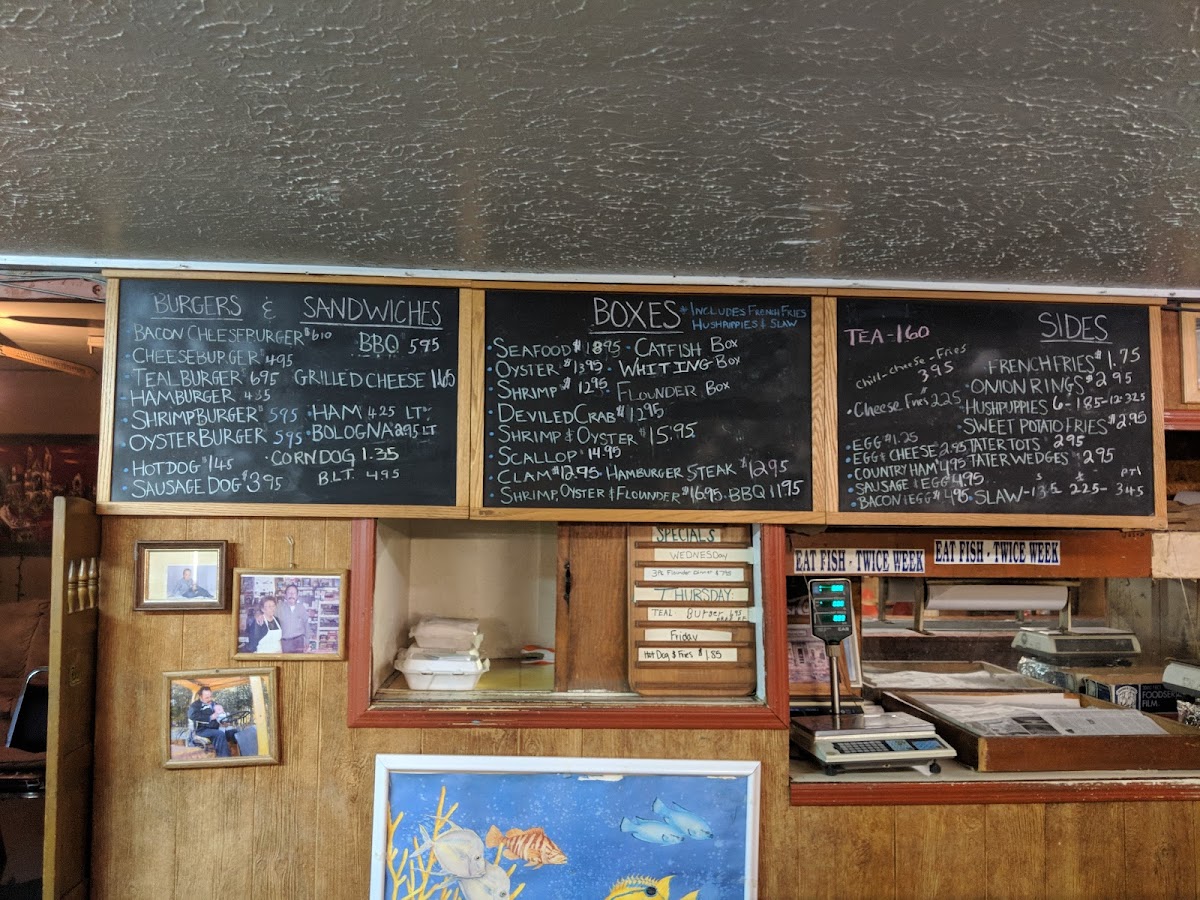 BURGERS & SANDWICHES
BACON CHEESEBURGER $610
BBQ 595
• CHEESEBURGER 495
• TEALBURGER $695
GRILLED CHEESE
• HAMBURGER 435
• SHRIMPBURGER $595
• HAM 425 LT
OYSTERBURGER 595
• BOLOGNA 295 LT
• CORNDOG 1.35
• HOTDOG $145
B.L.T. 495
• SAUSAGE DOG $3.95
BOXES * INCLUDES FRENCH FRIES
HUSHPUPPIES & SLAW
• SEAFOOD $1895 • CATFISH BOX
• OYSTER $1395 • WHITING BOX
• SHRIMP $1295
FLOUNDER BOX
• DEVILED CRAB $1295
• SHRIMP & OYSTER $15.95
• SCALLOP 14.95
• CLAM $12.95 • HAMBURGER STEAK $1295
• SHRIMP, OYSTER & FLOUNDER $1695 • BBQ 1195
TEA-160
SIDES
Chili-cheese-Fries
395
• Cheese Fries 225
FRENCH FRIES $1.75
• ONION RINGS $295
HUSHPUPPIES 6-185-12-325
• SWEET POTATO FRIES $295
• TATER TOTS 295
• TATER WEDGES $295
• EGG $1.25
• EGG & CHEESE 2.95
• COUNTRY HAM $4.95
• SAUSAGE & EGG 4.95
• BACON & EGG $4.95
• SLAW-135 225- 345
SPECIALS
WEDNESDAY
3Pc Flounder Dinner $7.95
THURSDAY:
TEAL Burger 6.95
Friday
Hot Dog & Fries $1.85
EAT FISH - TWICE WEEK
EAT FISH - TWICE WEEK
0.00
0.00
0.00
FOODSERVICE
FILM